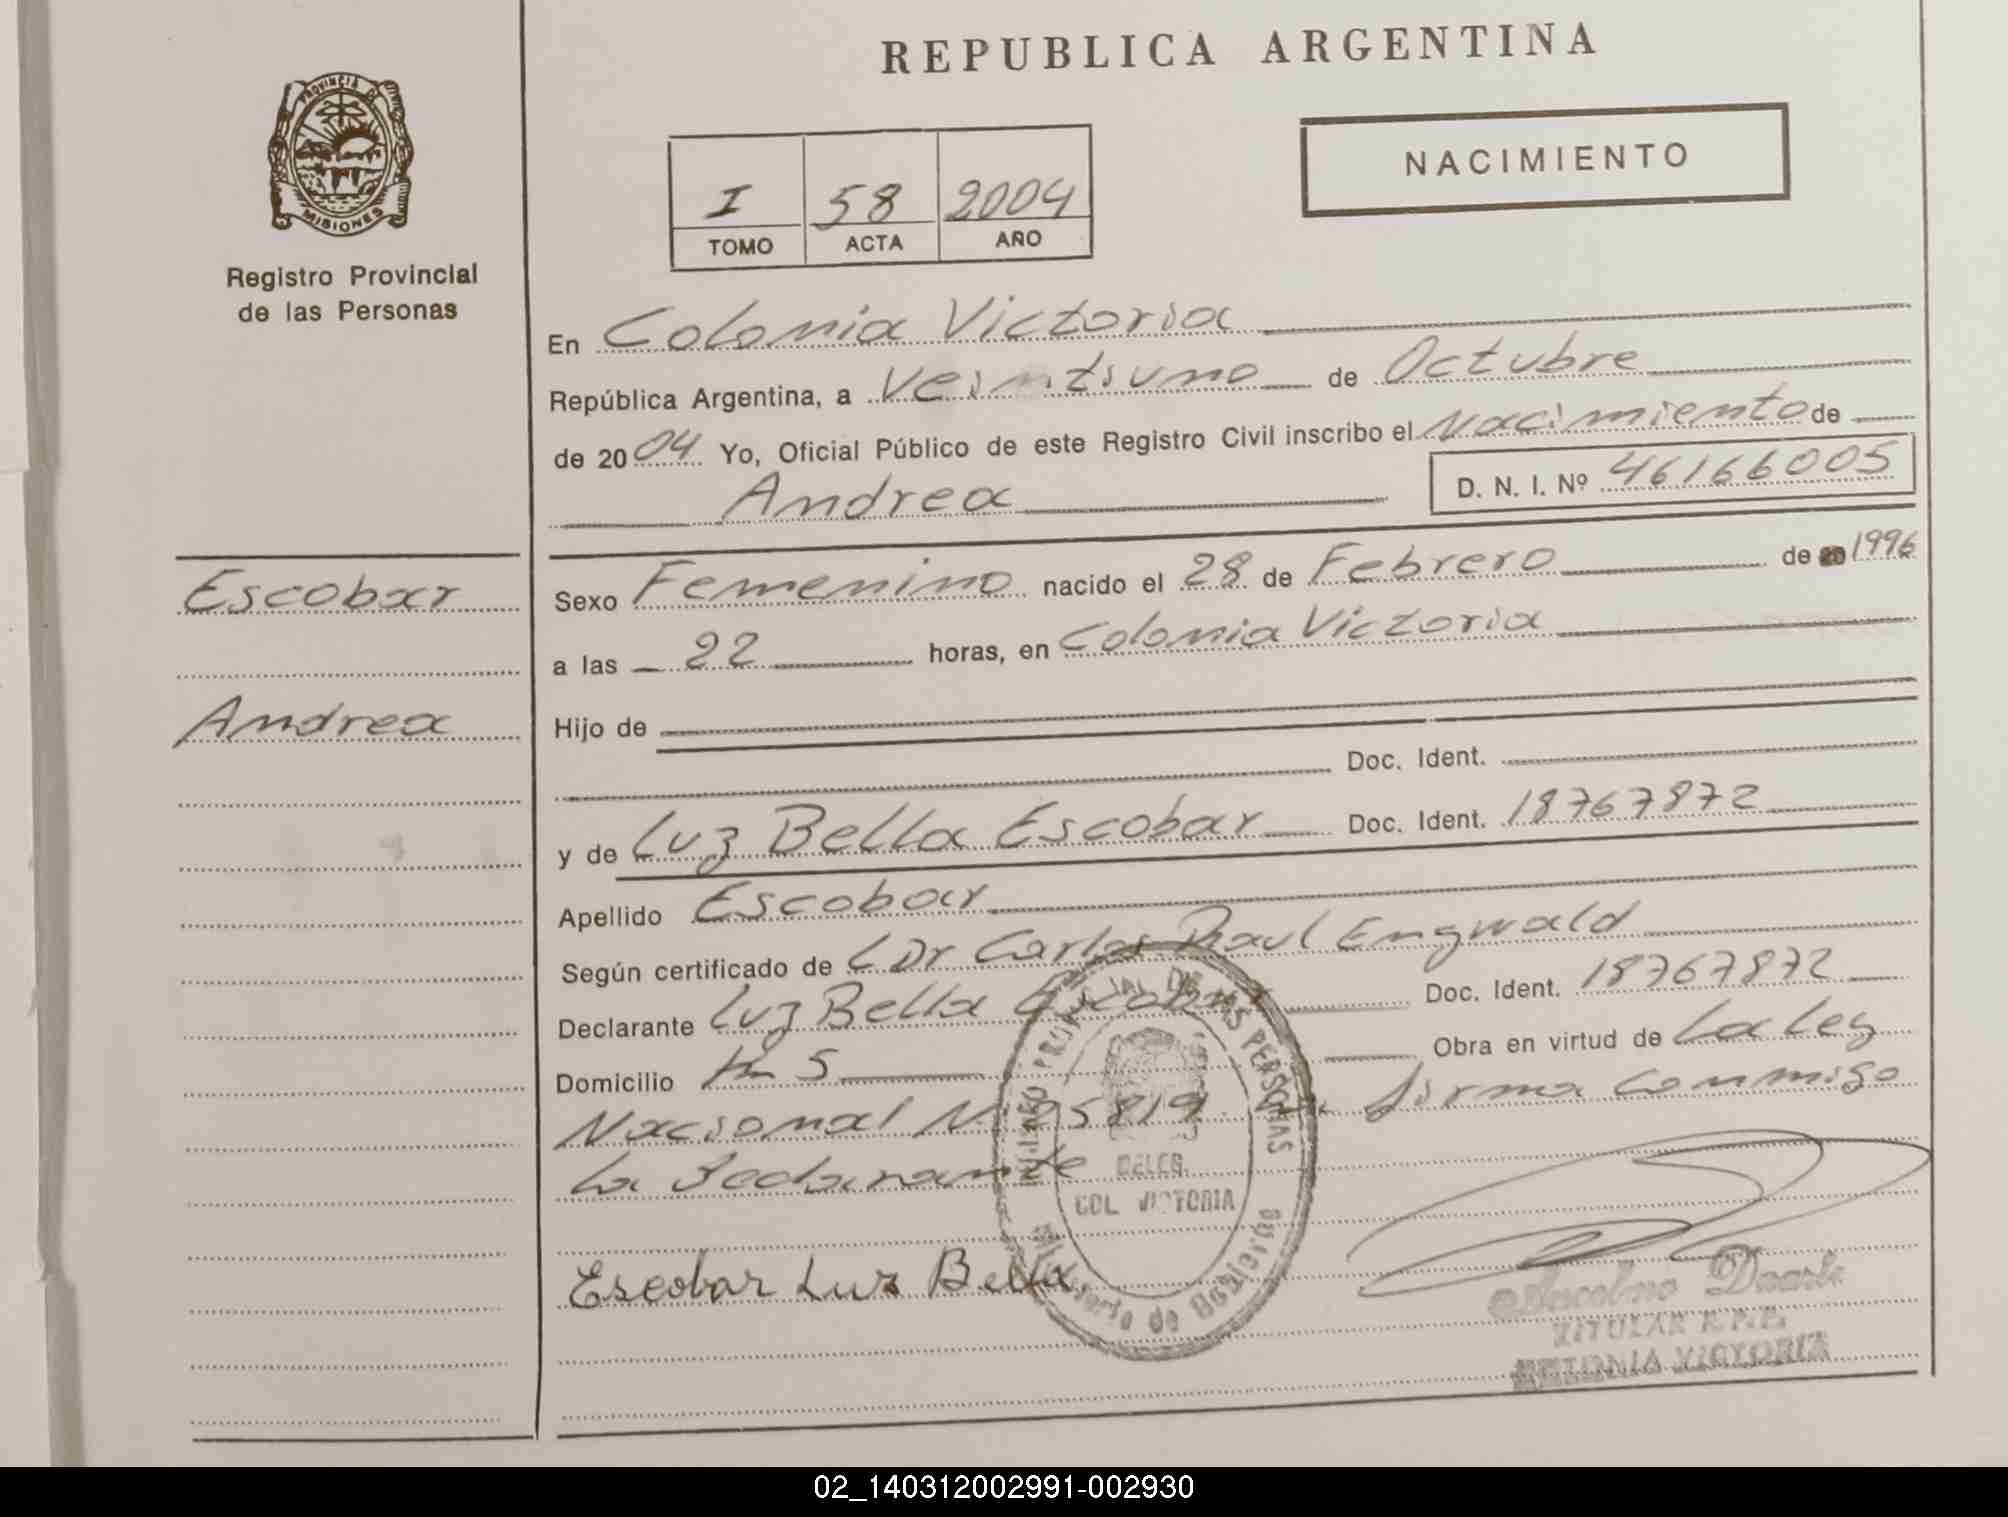 REPUBLICA ARGENTINA
PROVINCIA DE
MISIONES
Registro Provincial
de las Personas
I 58 2004
TOMO ACTA AÑO
NACIMIENTO
En Colonia Victoria
República Argentina, a Veintiuno de Octubre
de 2004 Yo, Oficial Público de este Registro Civil inscribo el Nacimiento de
Andrea D. N. I. Nº 46166005
Escobar
Andrea
Sexo Femenino nacido el 28 de Febrero de 1996
a las 22 horas, en Colonia Victoria
Hijo de
Doc. Ident.
y de Luz Bella Escobar Doc. Ident. 18767872
Apellido Escobar
Según certificado de Dr Carlos Raul Engwald
Declarante Luz Bella Escobar Doc. Ident. 18767872
Domicilio Km 5 Obra en virtud de La Ley
Nacional N 25819 firma conmigo
La Declarante
Escobar Luz Bella
PROVINCIAL DE LAS PERSONAS
DELEG.
COL VICTORIA
Ministerio de Gobierno
Duarte
TITULAR R.P.P.
COLONIA VICTORIA
02_140312002991-002930